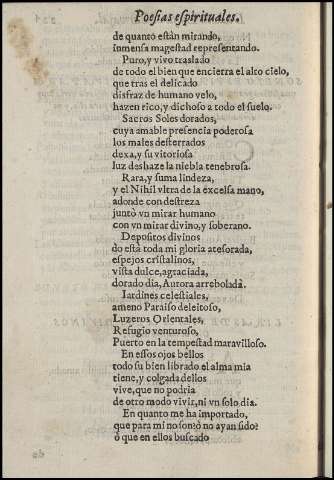 Poesias espirituales.
de quanto estàn mirando,
inmensa magestad representando.
Puro, y vivo traslado
de todo el bien que encierra el alto cielo,
que tras el delicado
disfraz de humano velo,
hazen rico, y dichoso a todo el suelo.
Sacros Soles dorados,
cuya amable presencia poderosa
los males desterrados
dexa, y su vitoriosa
luz deshaze la niebla tenebrosa.
Rara, y suma lindeza,
y el Nihil vltra de la excelsa mano,
adonde con destreza
juntò vn mirar humano
con vn mirar divino, y soberano.
Depositos divinos
do està toda mi gloria atesorada,
espejos cristalinos,
vista dulce, agraciada,
dorado dia, Aurora arrebolada.
Iardines celestiales,
ameno Paraiso deleitoso,
Luzeros Orientales,
Refugio venturoso,
Puerto en la tempestad maravilloso.
En essos ojos bellos
todo su bien librado el alma mia
tiene, y colgada dellos
vive, que no podria
de otro modo vivir, ni vn solo dia.
En quanto me ha importado,
que para mi no son? ò no ayan sido?
ò que en ellos buscado